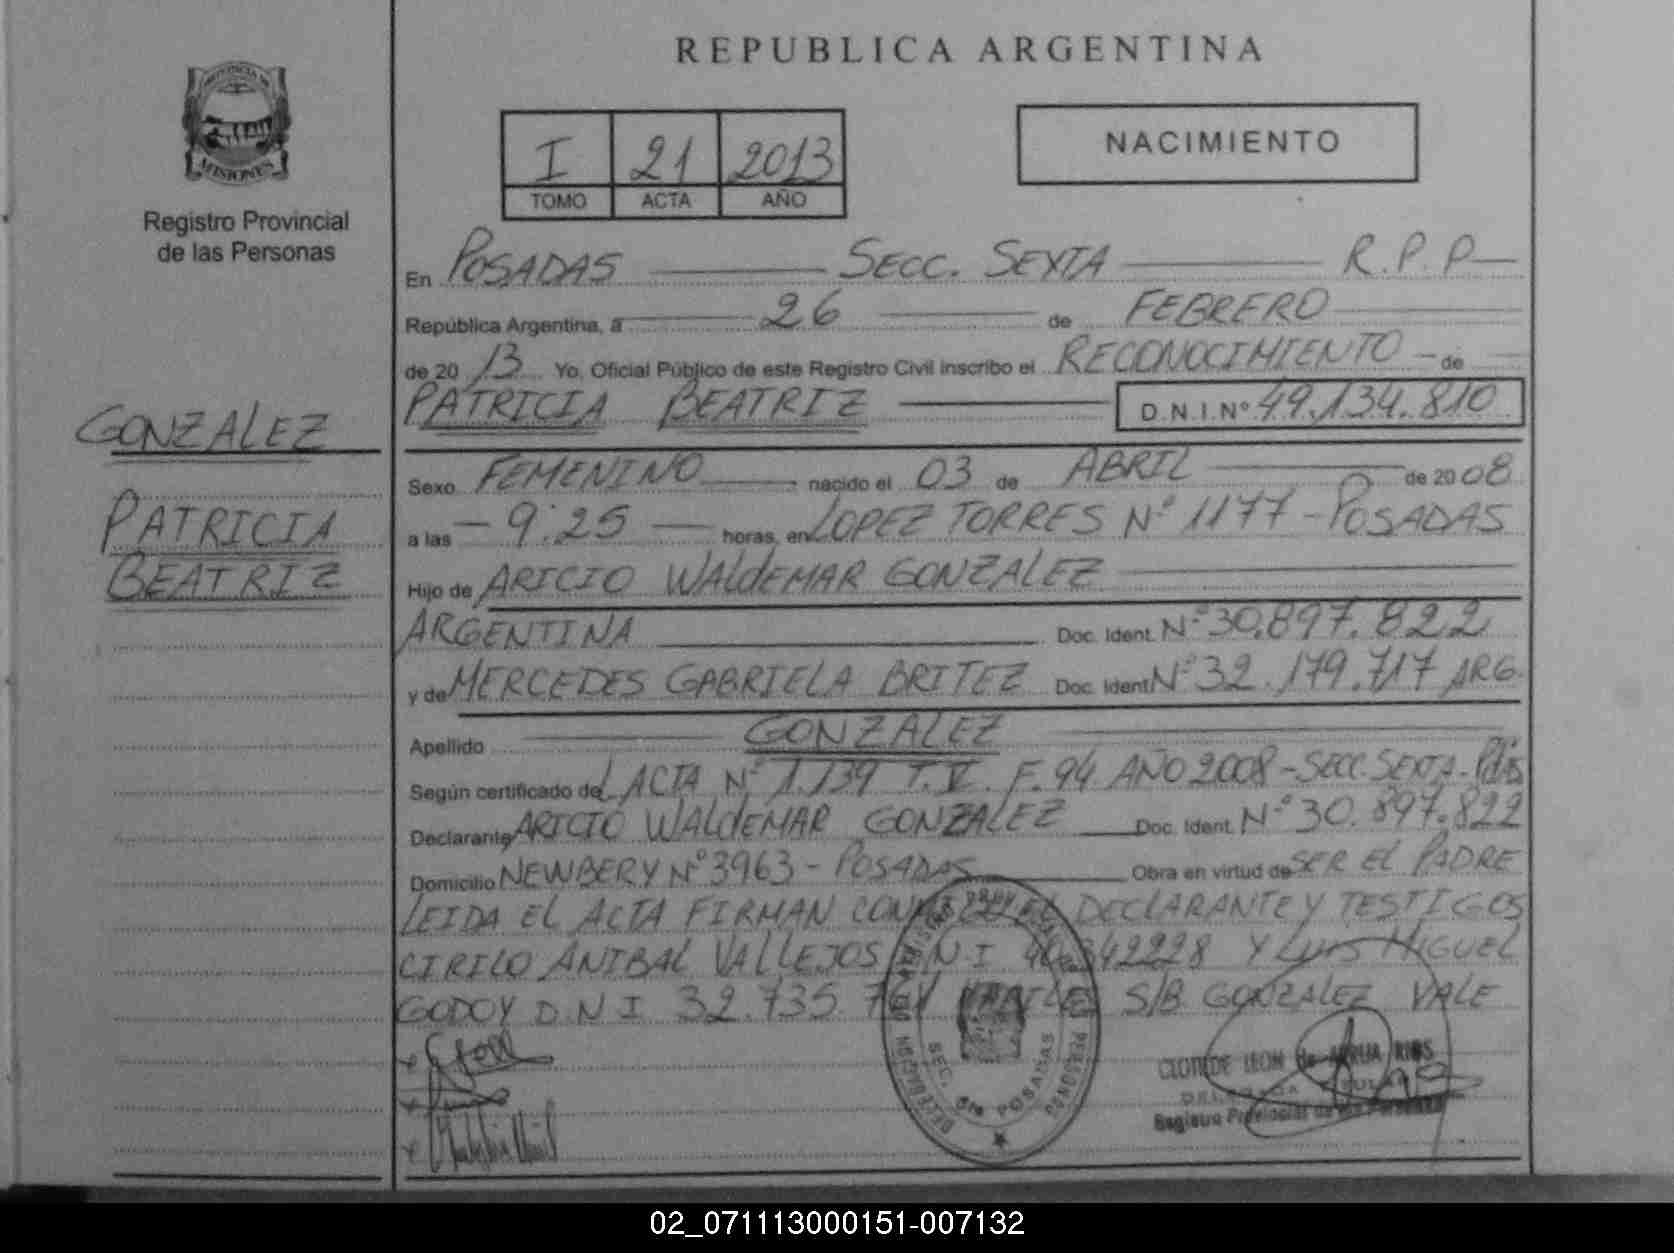 REPUBLICA ARGENTINA
PROVINCIA DE
MISIONES
Registro Provincial
de las Personas
I 21 2013
TOMO ACTA AÑO
NACIMIENTO
En POSADAS SECC. SEXTA R.P.P
República Argentina, a 26 de FEBRERO
de 2013 Yo, Oficial Público de este Registro Civil inscribo el RECONOCIMIENTO de
PATRICIA BEATRIZ D.N.I.Nº 49.134.810
GONZALEZ
PATRICIA
BEATRIZ
Sexo FEMENINO nacido el 03 de ABRIL de 2008
a las - 9:25 horas, en LOPEZ TORRES Nº 1177 - POSADAS
Hijo de ARICIO WALDEMAR GONZALEZ
ARGENTINA Doc. Ident. Nº 30.897.822
y de MERCEDES GABRIELA BRITEZ Doc. Ident Nº 32.179.717 ARG.
Apellido GONZALEZ
Según certificado del ACTA Nº 1.139 T. V. F. 94 AÑO 2008 - SECC. SEXTA - Pdas
Declarante ARICIO WALDEMAR GONZALEZ Doc. Ident. Nº 30.897.822
Domicilio NEWBERY Nº 3963 - POSADAS Obra en virtud de SER EL PADRE
LEIDA EL ACTA FIRMAN CONMIGO EL DECLARANTE Y TESTIGOS
CIRILO ANIBAL VALLEJOS D.N.I 342228 Y LUIS MIGUEL
GODOY D.N.I 32.735. S/B GONZALEZ VALE
SEC. 6ta POSADAS
CLOTILDE LEON de RIOS
Registro Provincial de las Personas
02_071113000151-007132